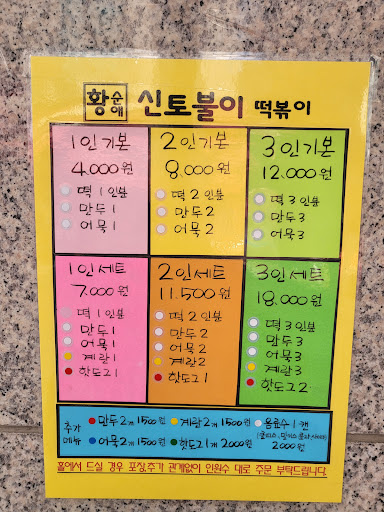 황순애 신토불이 떡볶이
1인기본
4.000원
떡 1인분
만두1
어묵1
2인기본
8.000원
떡 2인분
만두2
어묵2
3인기본
12.000원
떡 3인분
만두3
어묵3
1인세트
7.000원
떡 1인분
만두1
어묵1
계란1
핫도그1
2인세트
11.500원
떡 2인분
만두2
어묵2
계란2
핫도그1
3인세트
18.000원
떡 3인분
만두3
어묵3
계란3
핫도그2
추가 메뉴
만두2개 1500원 계란2개 1500원 음료수1캔
어묵2개 1500원 핫도그1개 2000원 2000원
홀에서 드실 경우 포장,추가 관계없이 인원수 대로 주문 부탁드립니다.